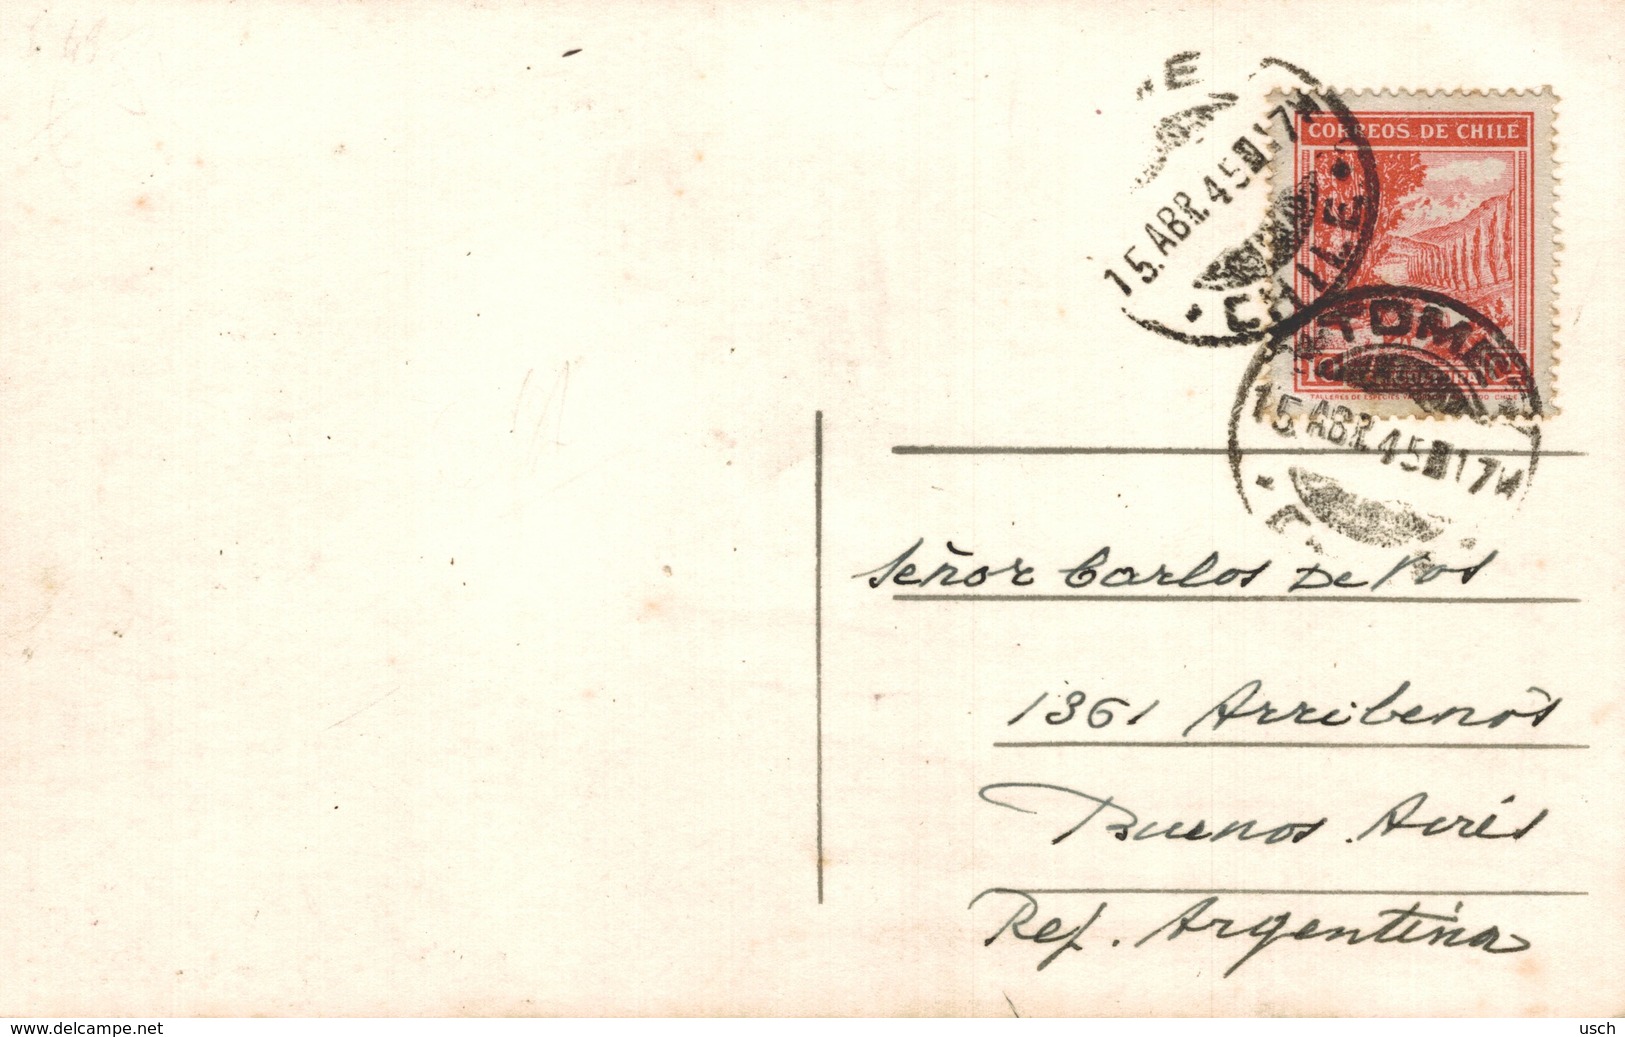 CORREOS DE CHILE
15.ABR.45 17
CHILE
TOME
15.ABR.45 17
Señor Carlos De Vos
1361 Arribenòs
Buenos Airés
Ref. Argentina
www.delcampe.net
usch